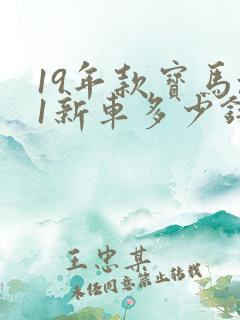 19年款寶馬
1新車多少
王忠某
未经同意禁止转载